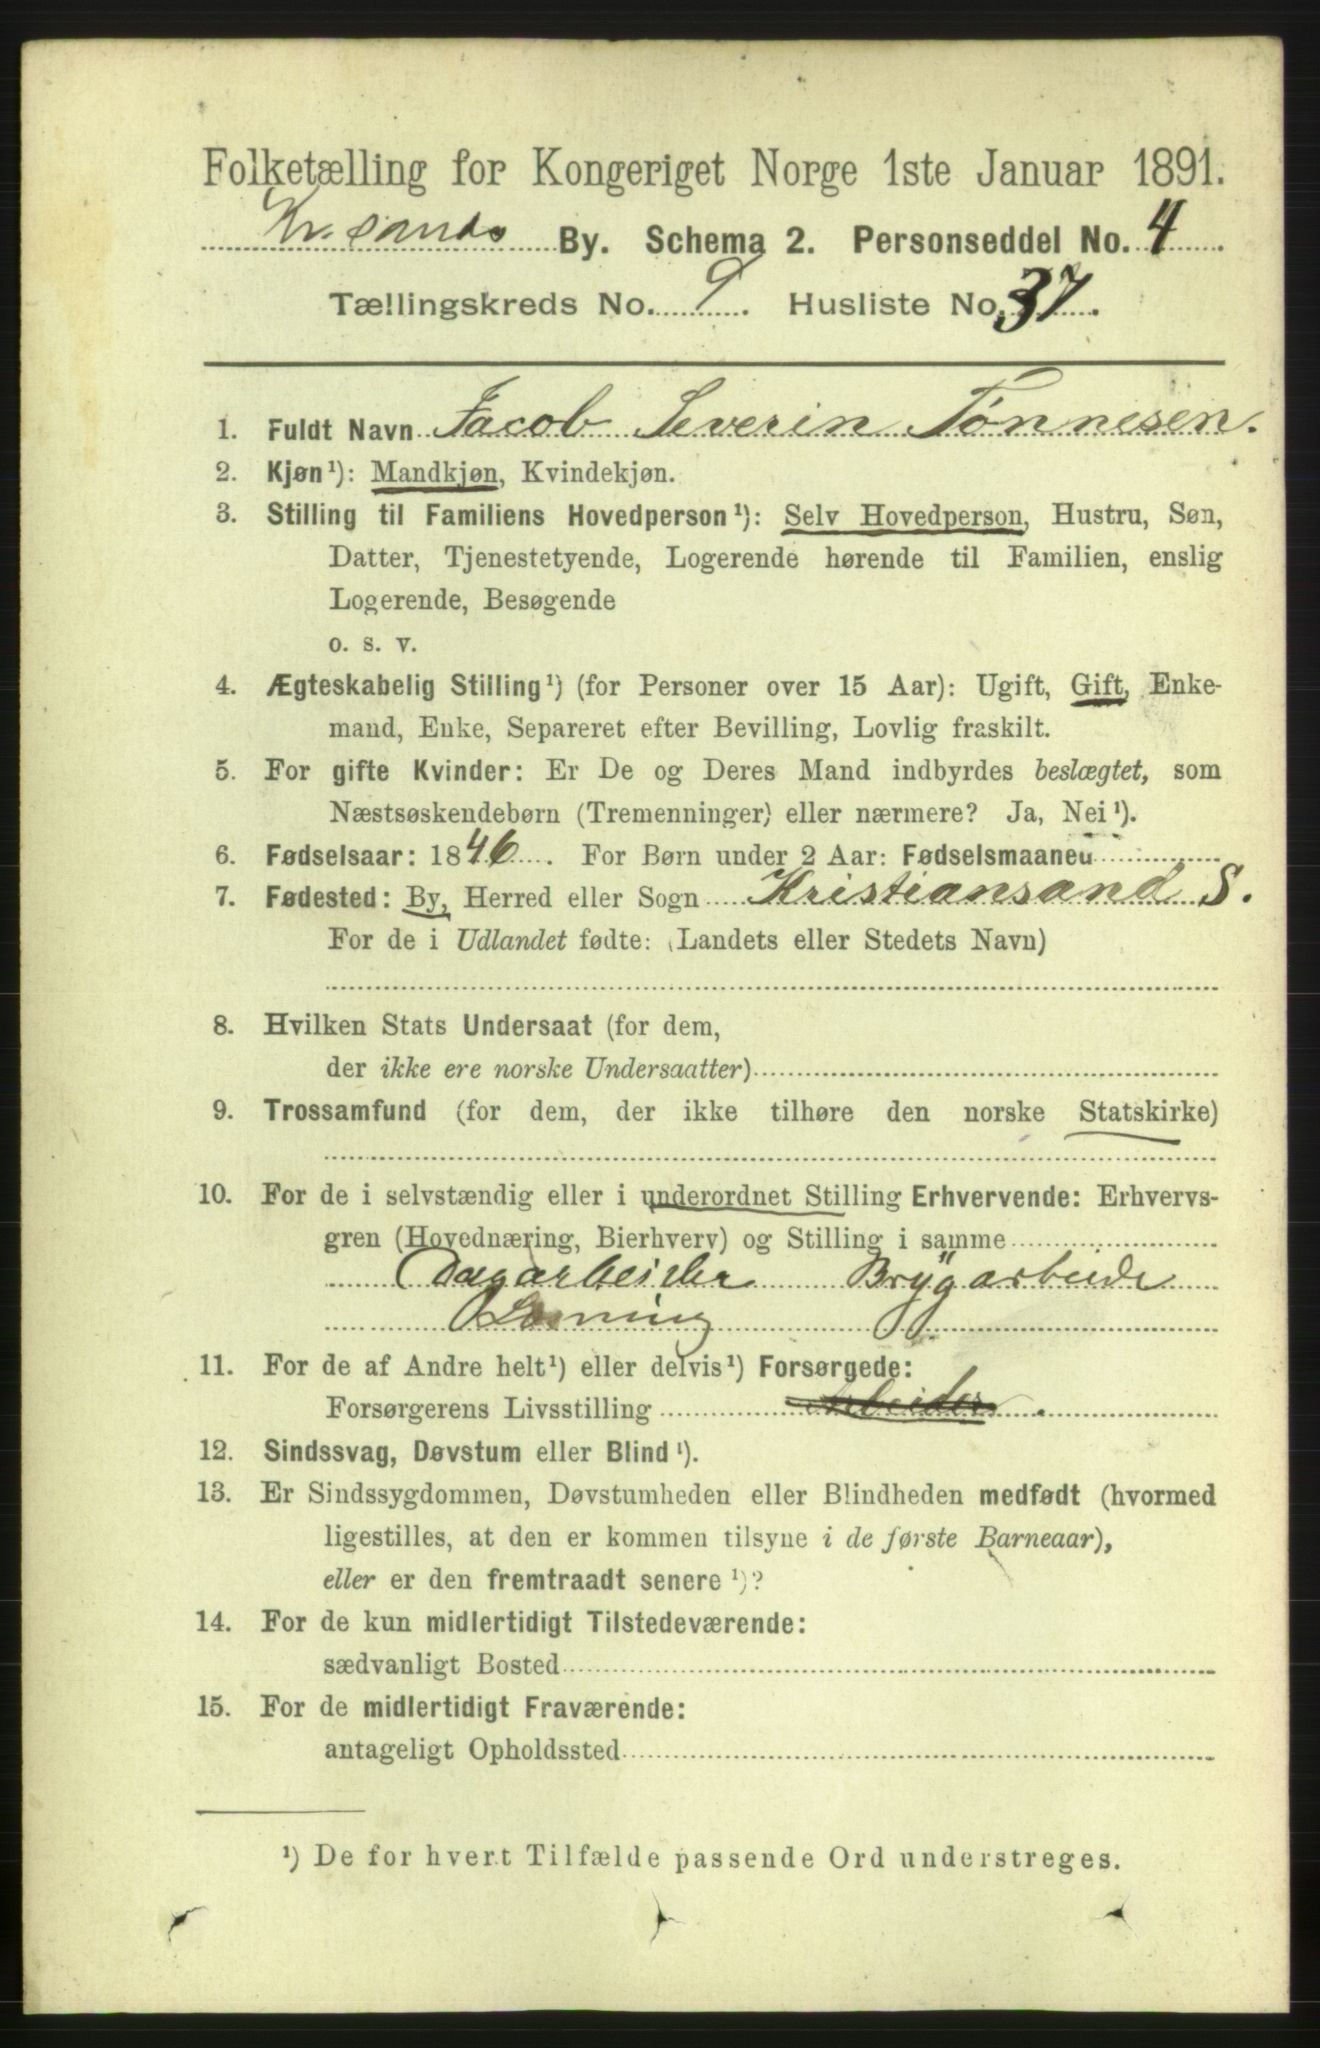 Folketælling for Kongeriget Norge 1ste Januar 1891.
Kr.sands By. Schema 2. Personseddel No. 4
Tællingskreds No. 9. Husliste No. 37.
1. Fuldt Navn Jacob Severin Tønnesen.
2. Kjøn¹): Mandkjøn, Kvindekjøn.
3. Stilling til Familiens Hovedperson¹): Selv Hovedperson, Hustru, Søn,
Datter, Tjenestetyende, Logerende hørende til Familien, enslig
Logerende, Besøgende
o. s. v.
4. Ægteskabelig Stilling¹) (for Personer over 15 Aar): Ugift, Gift, Enke-
mand, Enke, Separeret efter Bevilling, Lovlig fraskilt.
5. For gifte Kvinder: Er De og Deres Mand indbyrdes beslægtet, som
Næstsøskendebørn (Tremenninger) eller nærmere? Ja, Nei¹).
6. Fødselsaar: 1846. For Børn under 2 Aar: Fødselsmaaned
7. Fødested: By, Herred eller Sogn Kristiansand S.
For de i Udlandet fødte: (Landets eller Stedets Navn)
8. Hvilken Stats Undersaat (for dem,
der ikke ere norske Undersaatter)
9. Trossamfund (for dem, der ikke tilhøre den norske Statskirke)
10. For de i selvstændig eller i underordnet Stilling Erhvervende: Erhvervs-
gren (Hovednæring, Bierhverv) og Stilling i samme
Dagarbeider Brygarbeide
11. For de af Andre helt¹) eller delvis¹) Forsørgede:
Forsørgerens Livsstilling Arbeider.
12. Sindssvag, Døvstum eller Blind¹).
13. Er Sindssygdommen, Døvstumheden eller Blindheden medfødt (hvormed
ligestilles, at den er kommen tilsyne i de første Barneaar),
eller er den fremtraadt senere¹)?
14. For de kun midlertidigt Tilstedeværende:
sædvanligt Bosted
15. For de midlertidigt Fraværende:
antageligt Opholdssted
¹) De for hvert Tilfælde passende Ord understreges.